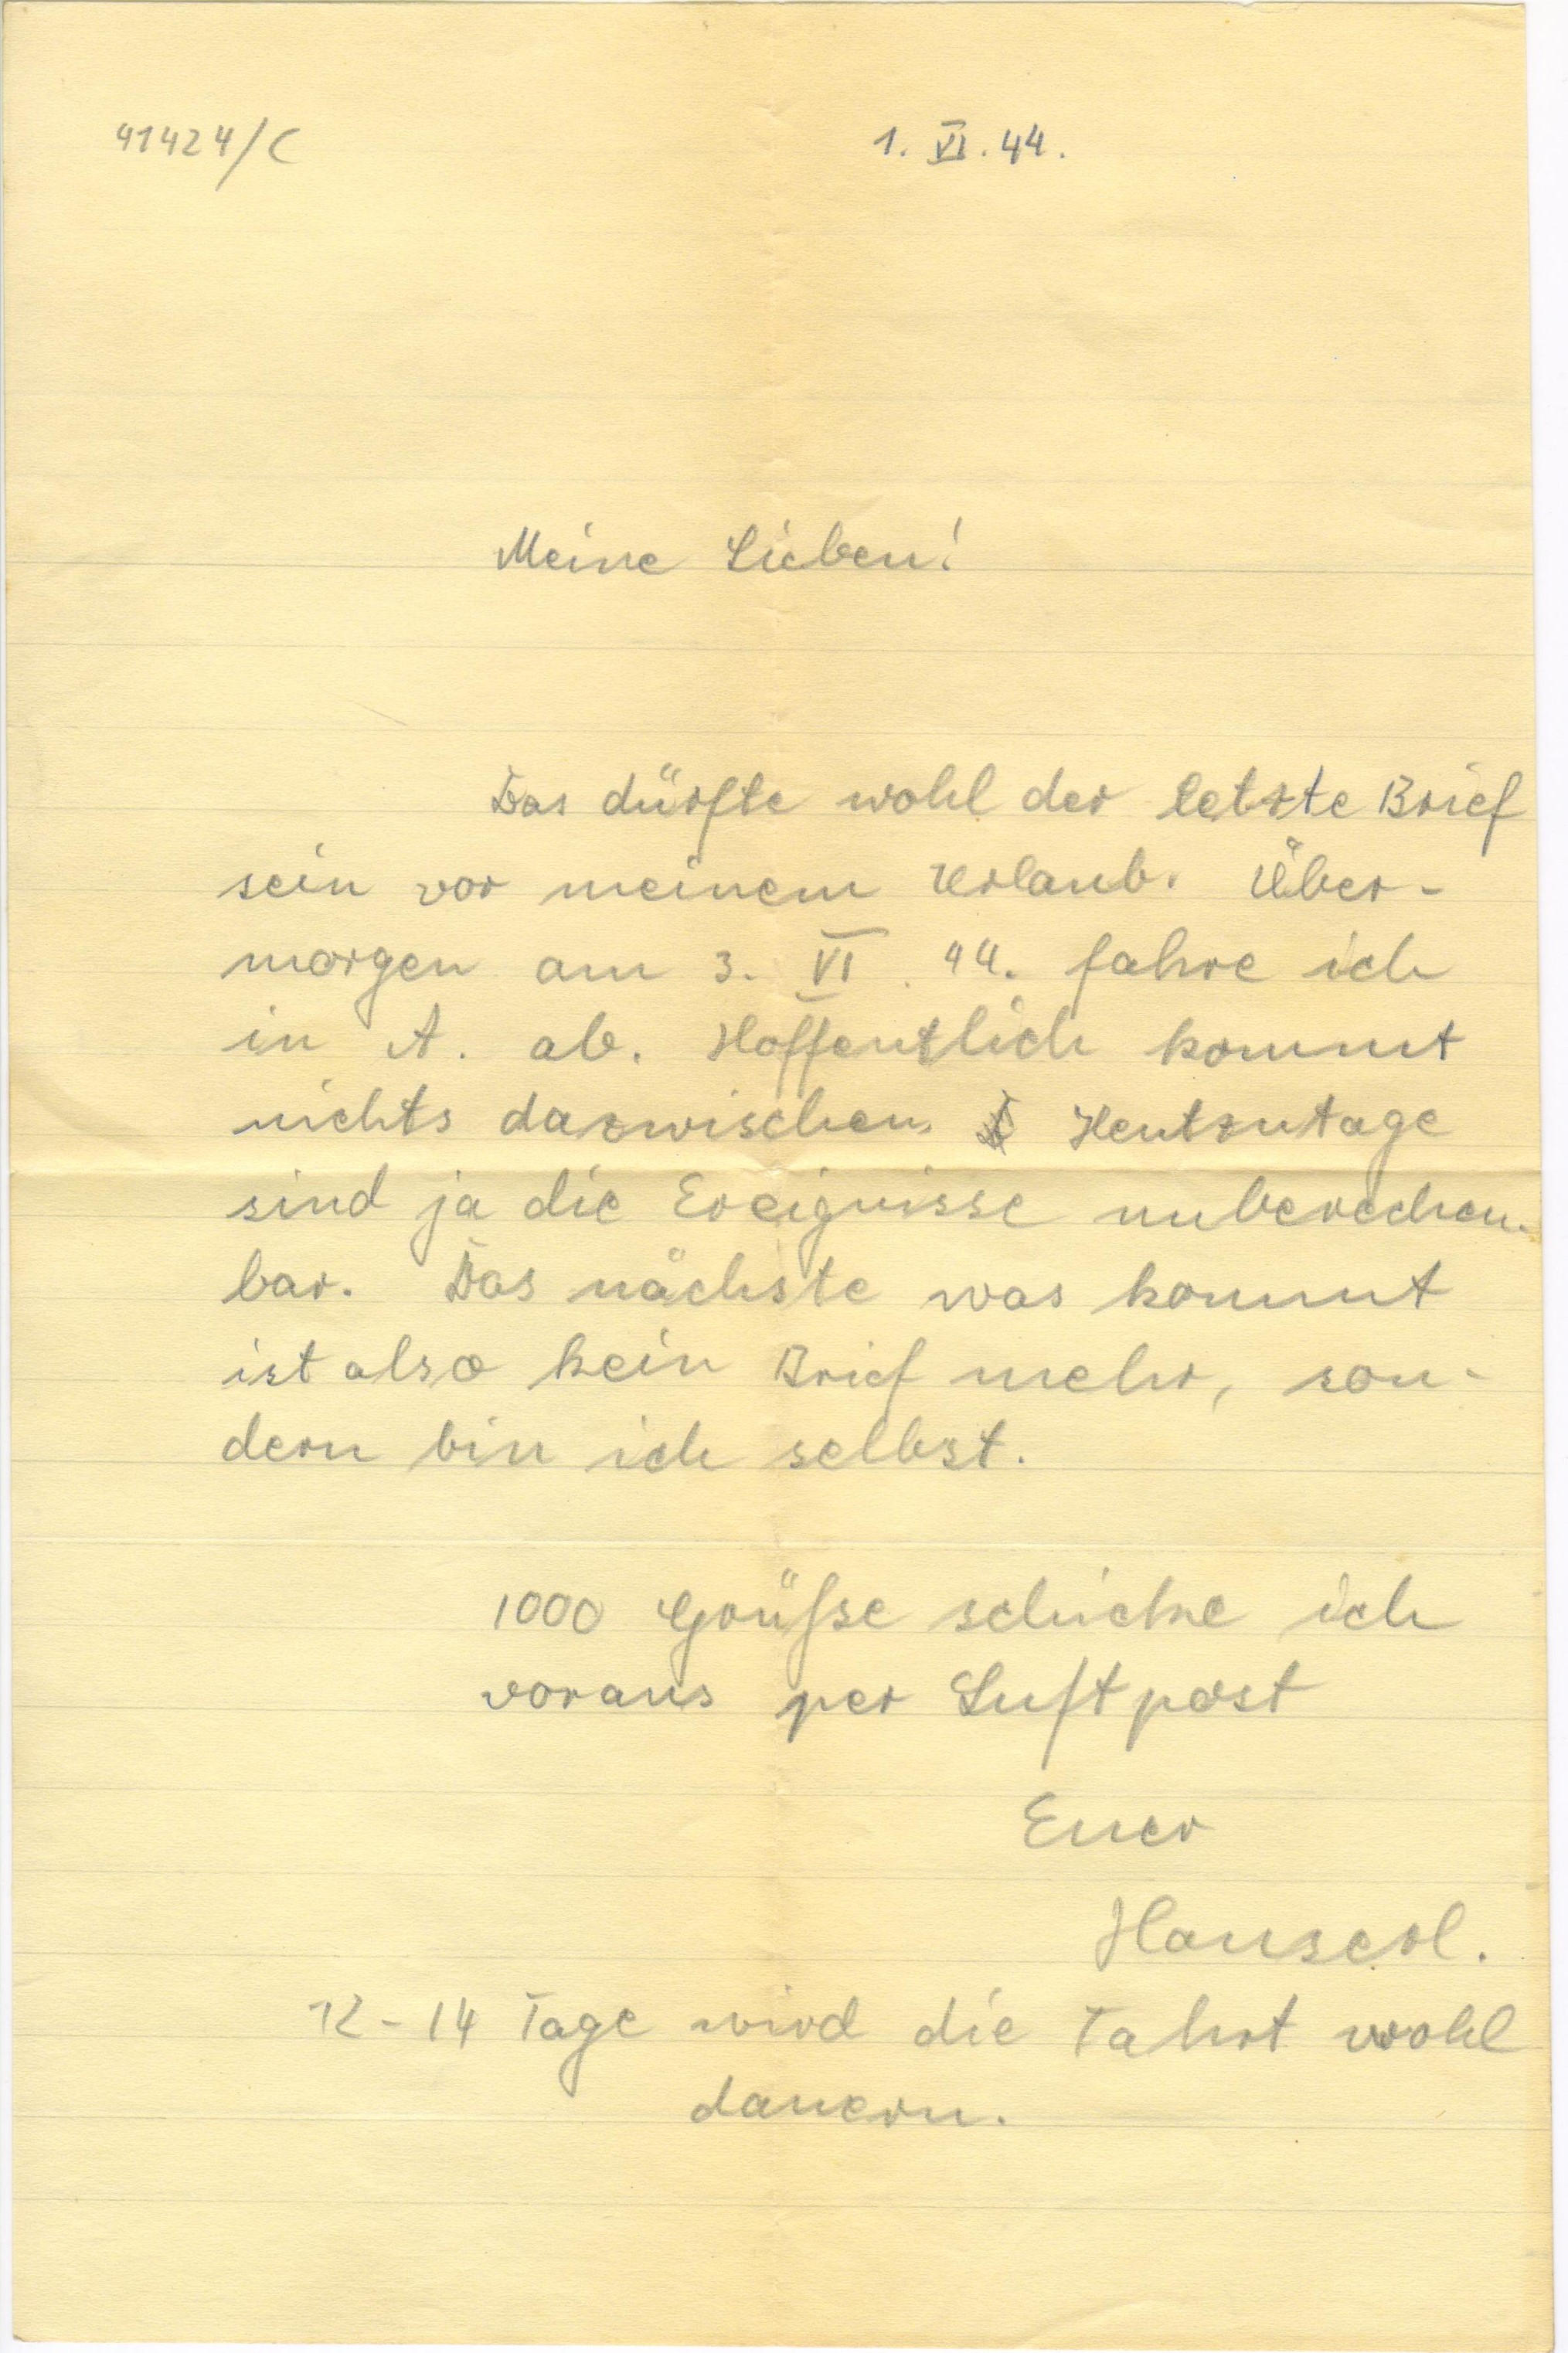 41424/C
1. VI. 44.
Meine Lieben!
Das dürfte wohl der letzte Brief
sein vor meinem Urlaub. Über-
morgen am 3. VI. 44. fahre ich
in A. ab. Hoffentlich kommt
nichts dazwischen. Heutzutage
sind ja die Ereignisse unberechen-
bar. Das nächste was kommt
ist also kein Brief mehr, son-
dern bin ich selbst.
1000 Grüße schicke ich
voraus per Luftpost
Euer
Hanserl.
12-14 Tage wird die Fahrt wohl
dauern.